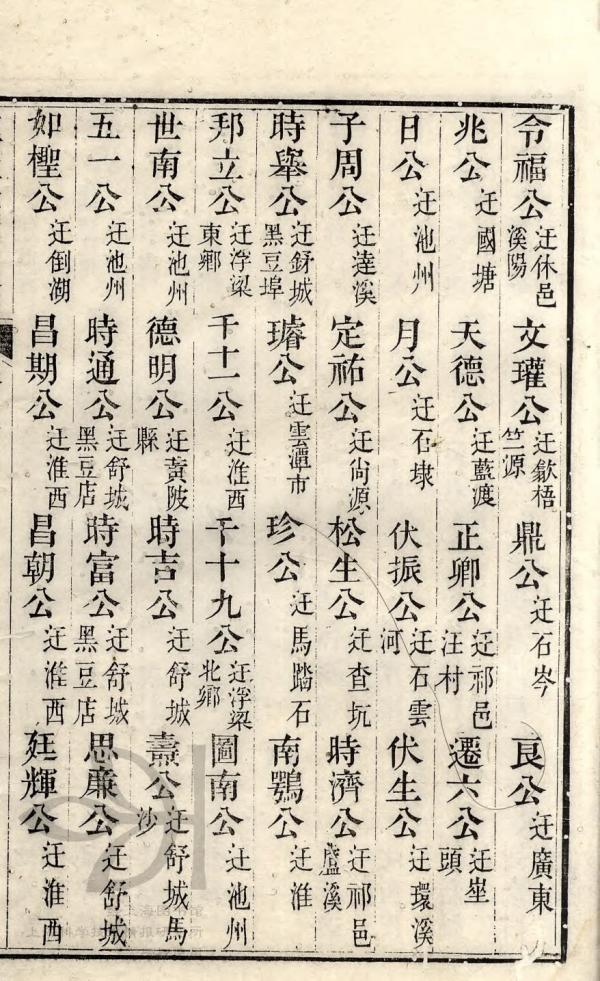 令福公迁休邑溪陽 文瓘公迁歙梧竺源 鼎公迁石岑 良公迁廣東
兆公迁國塘 天德公迁藍渡 正卿公迁祁邑汪村 遷六公迁坐頭
日公迁池州 月公迁石埭 伏振公迁石雲河 伏生公迁環溪
子周公迁逹溪 定祐公迁尙源 松生公迁查坑 時濟公迁祁邑盧溪
時舉公迁舒城黑豆埠 璿公迁雲潭市 珍公迁馬踏石 南鶚公迁淮
邦立公迁浮梁東鄉 千十一公迁淮西 千十九公迁浮梁北鄉 圖南公迁池州
世南公迁池州 德明公迁黃陂縣 時吉公迁舒城 燾公迁舒城馬沙
五一公迁池州 時通公迁舒城黑豆店 時富公迁舒城黑豆店 思廉公迁舒城
如檉公迁倒湖 昌期公迁淮西 昌朝公迁淮西 廷輝公迁淮西